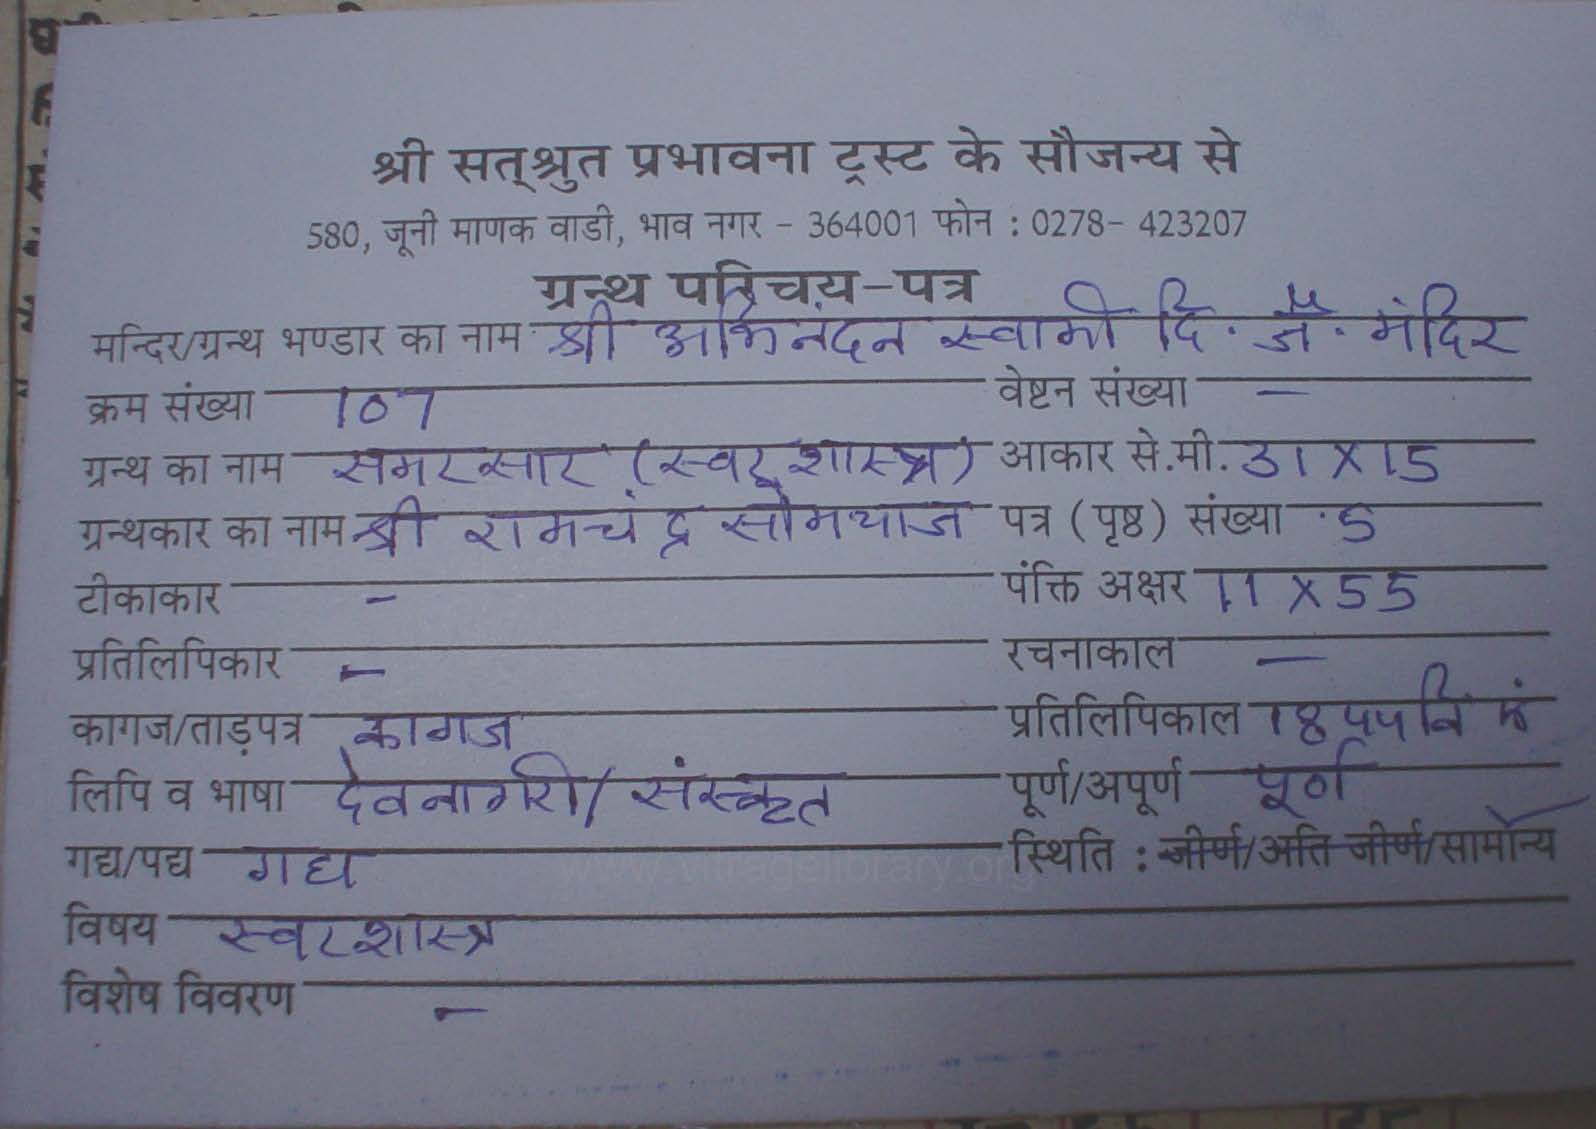 श्री सत्‌श्रुत प्रभावना ट्रस्ट के सौजन्य से
580, जूनी माणक वाडी, भाव नगर - 364001 फोन : 0278- 423207
ग्रन्थ परिचय-पत्र
मन्दिर/ग्रन्थ भण्डार का नाम श्री अभिनंदन स्वामी दि. जै. मंदिर
क्रम संख्या 107 वेष्टन संख्या —
ग्रन्थ का नाम समरसार (स्वर शास्त्र) आकार से.मी. 31 X 15
ग्रन्थकार का नाम श्री रामचंद्र सोमयाज पत्र (पृष्ठ) संख्या 5
टीकाकार - पंक्ति अक्षर 11 X 55
प्रतिलिपिकार - रचनाकाल —
कागज/ताड़पत्र कागज प्रतिलिपिकाल 18५५ वि सं
लिपि व भाषा देवनागरी/संस्कृत पूर्ण/अपूर्ण पूर्ण
गद्य/पद्य गद्य स्थिति : जीर्ण/अति जीर्ण/सामान्य
www.vitragelibrary.org
विषय स्वरशास्त्र
विशेष विवरण -